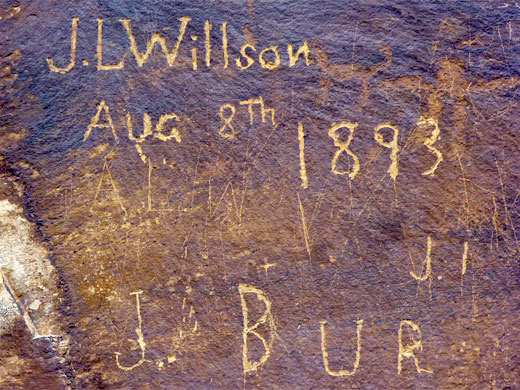 J.L Willson
Aug 8Th 1893
A L W
J.I
J. B U R